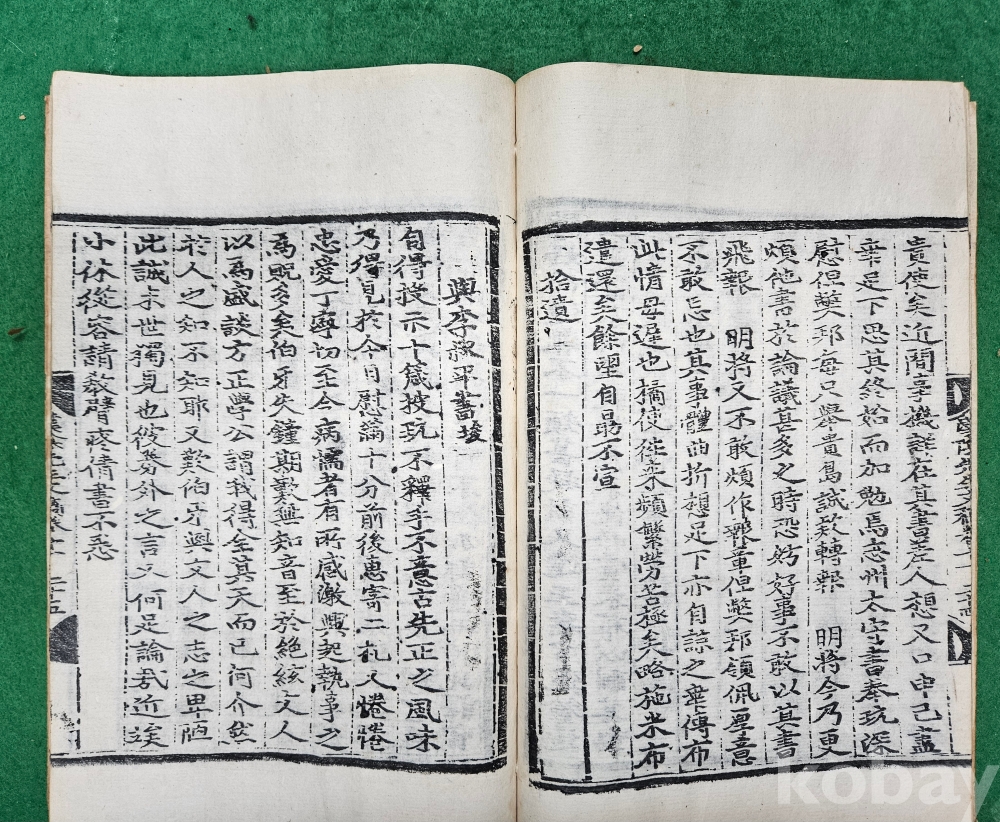 貴使矣近聞事機詳在直書差人想又口申已盡
幸足下思其終始而加勉焉志州太守書奉玩深
慰但弊邦每只擧貴島誠款轉報 明將今乃更
煩他書於論議甚多之時恐妨好事不敢以其書
飛報 明將又不敢頻作郵筆但弊邦領佩厚意
不敢忘也其事體曲折想足下亦自諒之幸傳布
此情毋遲也橘使徃來頻繁勞苦極矣略施米布
遣還矣餘望自勗不宣
拾遺
與李叔平蓄埈
自得投示十箴披玩不釋手不意古先正之風味
乃得見於今日慰滿十分前後惠寄二札又惓惓
忠愛丁寧切至令病懦者有所感激興起執事之
爲貺多矣伯牙失鐘期歎無知音至於絶絃文人
以爲感談方正學公謂我得全其天而已何介然
於人之知不知耶又歎伯牙與文人之志之卑陋
此誠末世獨見也彼分外之言又何足論哉近竢
小休從容請敎臂疼倩書不悉
二十五
kobay